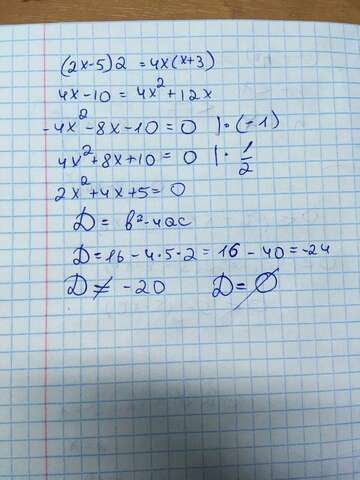 (2x-5)2 = 4x(x+3)
4x-10 = 4x²+12x
-4x²-8x-10=0 |·(-1)
4x²+8x+10=0 |·1/2
2x²+4x+5=0
D = b²-4ac
D=16-4·5·2=16-40=-24
D≠-20 D=Ø